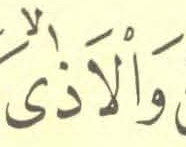 وَاْلاَذٰىۙ